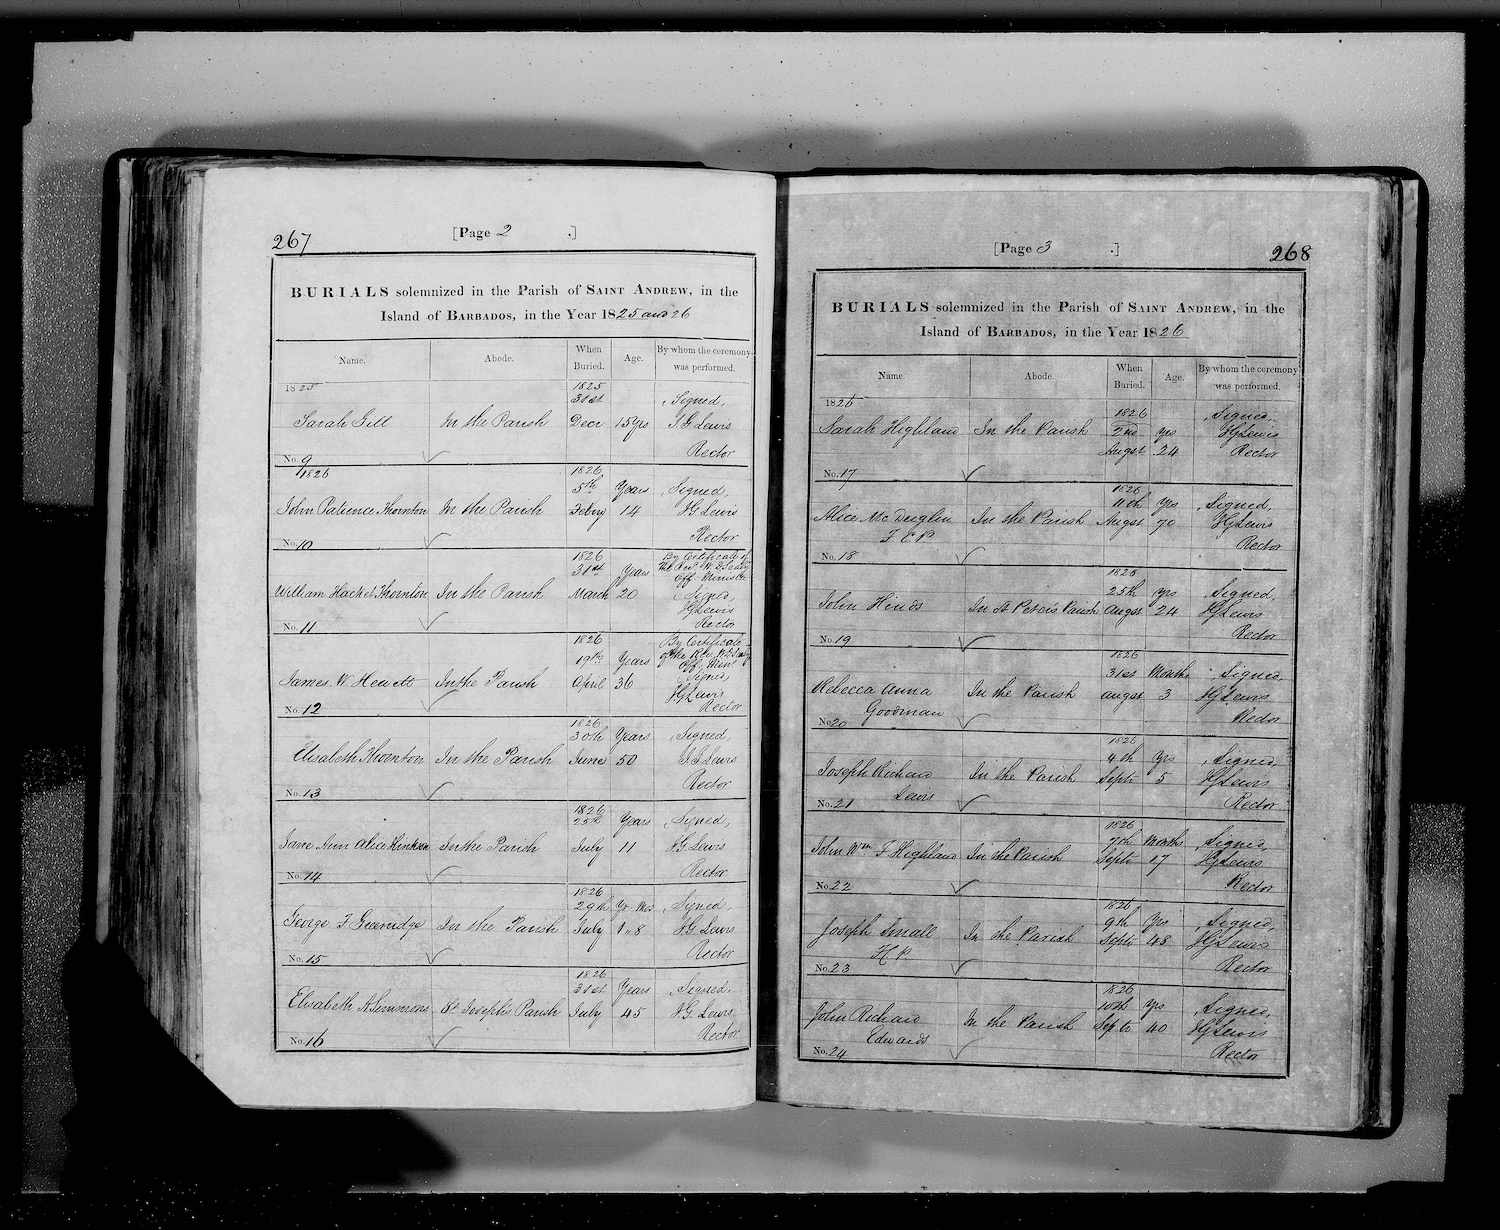 267
[Page 2 .]
BURIALS solemnized in the Parish of SAINT ANDREW, in the
Island of BARBADOS, in the Year 1825 and 26
Name. Abode. When Buried. Age. By whom the ceremony was performed.
1825 1825
31st Signed,
Sarah Gill In the Parish Decr 15 Yrs Lewis
No. 9 Rector
1826 1826
5th Years Signed,
John Patience Thornton In the Parish Febry 14 HG Lewis
No. 10 Rector
1826 By Certificate of
31st Years the Revd W.
William Hacket Thornton In the Parish March 20 Signed,
HG Lewis
No. 11 Rector
1826 By Certificate
19th Years of the Rev.
James W Hewett In the Parish April 36 Signed,
HG Lewis
No. 12 Rector
1826
30th Years Signed,
Elisabeth Thornton In the Parish June 50 Lewis
No. 13 Rector
1826
25th Years Signed,
Jane Ann Alice In the Parish July 11 HG Lewis
No. 14 Rector
1826
29th Yr Mos Signed,
George F Greenidge In the Parish July 1 " 8 HG Lewis
No. 15 Rector
1826
31st Years Signed,
Elisabeth A Simmons St Joseph's Parish July 45 HG Lewis,
No. 16 Rector
[Page 3 .]
268
BURIALS solemnized in the Parish of SAINT ANDREW, in the
Island of BARBADOS, in the Year 1826
Name. Abode. When Buried. Age. By whom the ceremony was performed.
1826 1826 Signed,
Sarah Highland In the Parish 2nd Yrs HG Lewis
Augst 24 Rector
No. 17
1826
11th Yrs Signed,
Alice Mc In the Parish Augst 70 HG Lewis
F C P Rector
No. 18
1826
25th Yrs Signed,
John Hinds In St Peter's Parish Augst 24 HG Lewis
No. 19 Rector
1826
31st Months Signed,
Rebecca Anna In the Parish Augst 3 HG Lewis
Goodman Rector
No. 20
1826
4th Yrs Signed,
Joseph Richard In the Parish Septr 5 HG Lewis
Lewis Rector
No. 21
1826
7th Months Signed,
John Wm F Highland In the Parish Septr 17 HG Lewis
No. 22 Rector
1826
9th Yrs Signed,
Joseph Small In the Parish Septr 48 HG Lewis
H P Rector
No. 23
1826
10th Yrs Signed,
John Richard In the Parish Septr 40 HG Lewis
Edwards Rector
No. 24